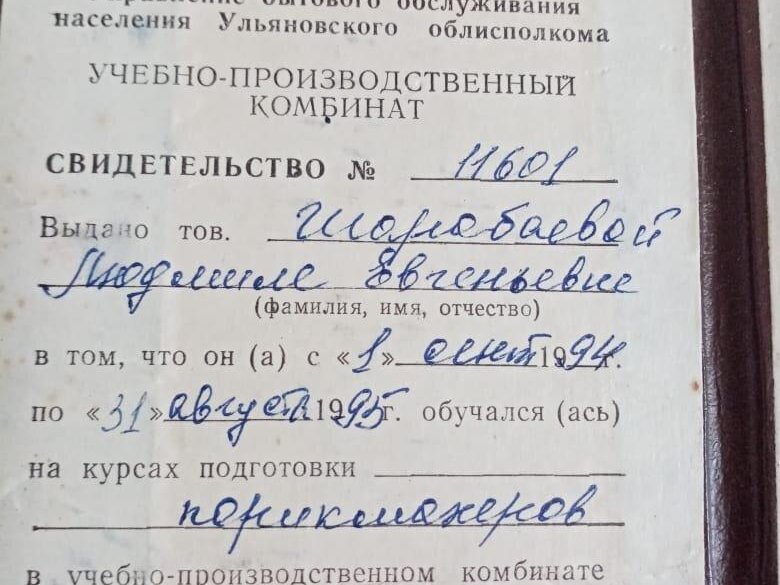 Управление бытового обслуживания
населения Ульяновского облисполкома
УЧЕБНО-ПРОИЗВОДСТВЕННЫЙ
КОМБИНАТ
СВИДЕТЕЛЬСТВО № 11601
Выдано тов. Шарабаевой
Людмиле Евгеньевне
(фамилия, имя, отчество)
в том, что он (а) с «1» сент 1994 г.
по «31» августа 1995 г. обучался (ась)
на курсах подготовки
парикмахеров
в учебно-производственном комбинате